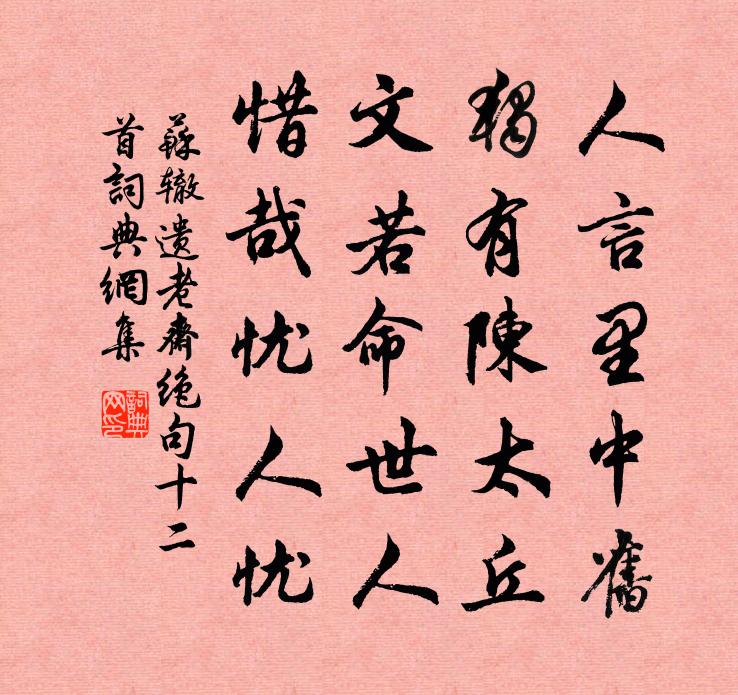 人言里中舊
獨有陳太丘
文若命世人
惜哉忧人忧
蘇辙遗老齋绝句十二
首詞典網集
詞典
网印